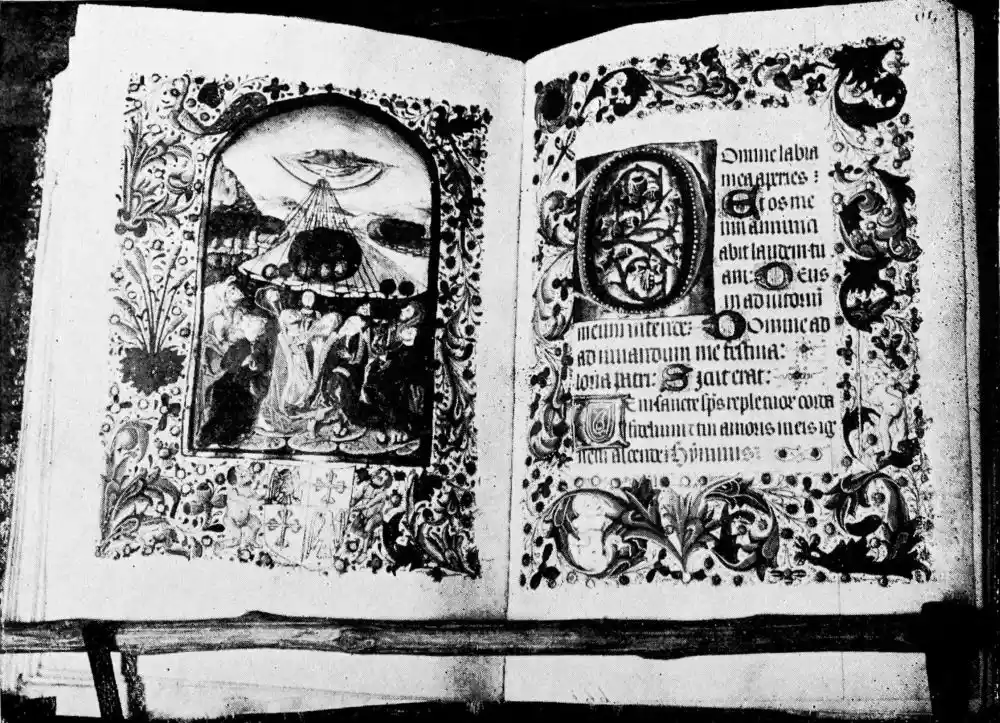 Omine labia
mea aperies :
Et os me
um annunci
abit laudem tu
am: Deus
in adiutoriū
meum intende: Domine ad
adiuuandum me festina:
loria patri: Sicut erat:
Eni sancte sp̄s reple tuor corda
fidelium: et tui amoris in eis ig
nem accende: Hymnus: